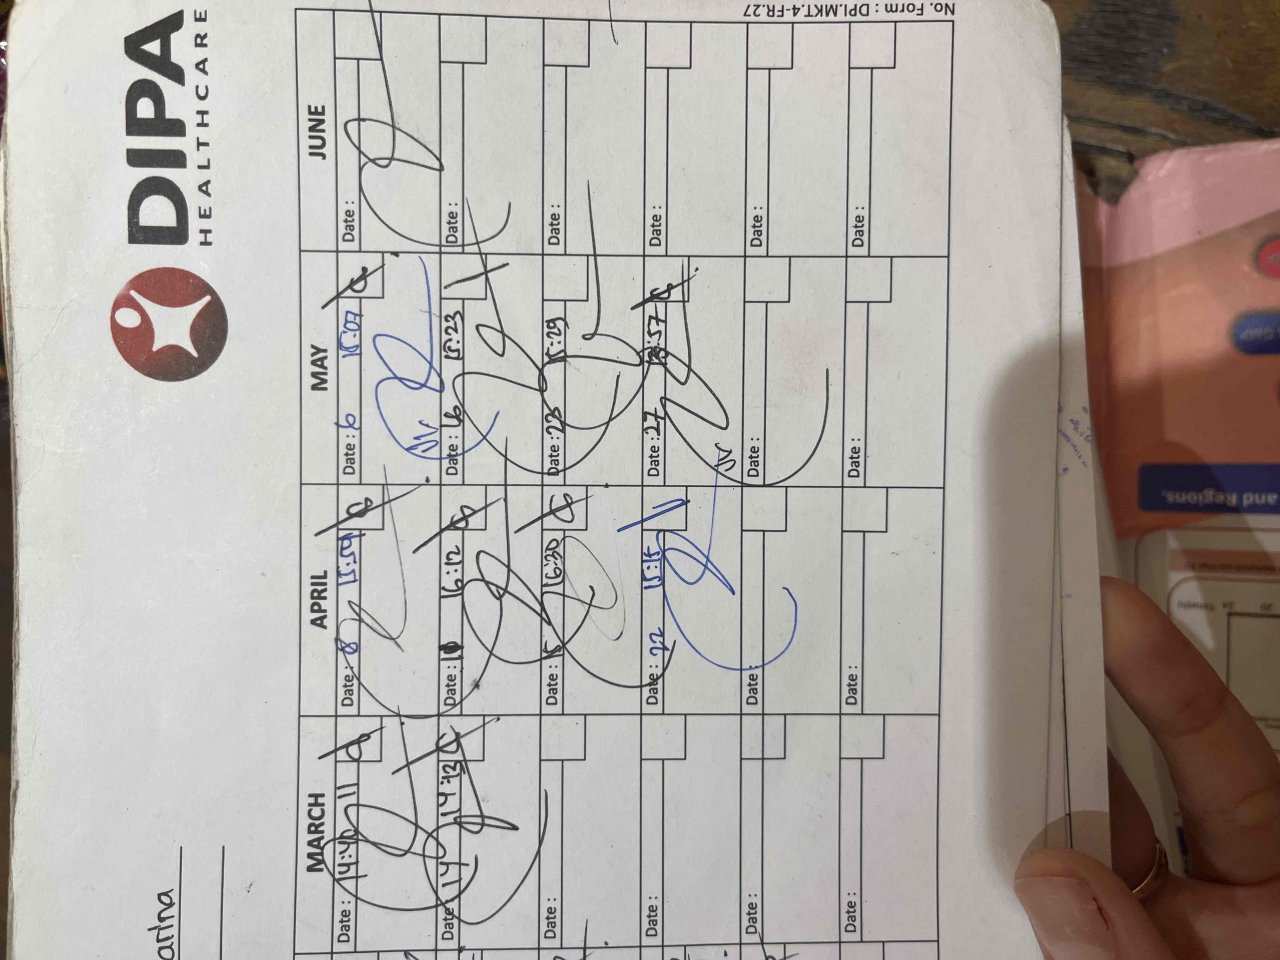 DIPA
HEALTHCARE
artha
MARCH
APRIL
MAY
JUNE
Date : 14:40 11
Date : 8 15:59
Date : 6 15:07
Date :
Date : 14 14:43
Date : 10 16:12
Date : 16 15:23
Date :
Date :
Date : 15 16:30
Date : 23 15:29
Date :
Date :
Date : 22 15:15
Date : 27 15:57
Date :
Date :
Date :
Date :
Date :
Date :
Date :
Date :
Date :
No. Form : DPI.MKT.4-FR.27
and Regions.